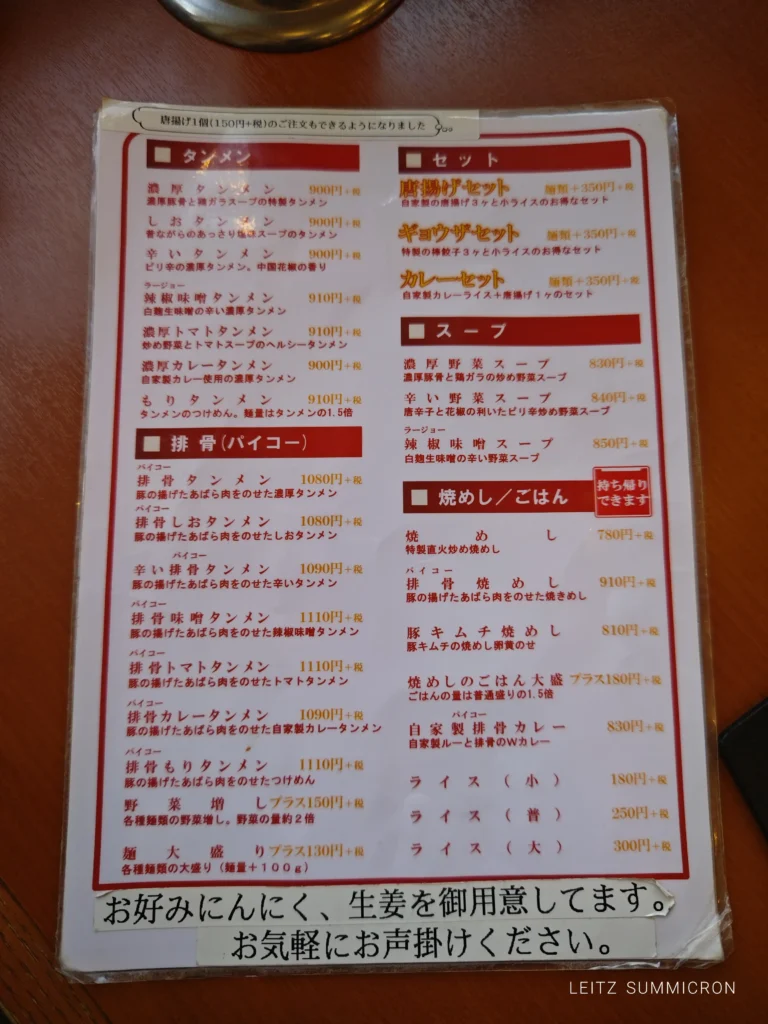 唐揚げ1個(150円+税)のご注文もできるようになりました
■ タンメン
濃厚タンメン 900円+税
濃厚豚骨と鶏ガラスープの特製タンメン
しおタンメン 900円+税
昔ながらのあっさり塩味スープのタンメン
辛いタンメン 900円+税
ピリ辛の濃厚タンメン。中国花椒の香り
ラージョー
辣椒味噌タンメン 910円+税
白麹生味噌の辛い濃厚タンメン
濃厚トマトタンメン 910円+税
炒め野菜とトマトスープのヘルシータンメン
濃厚カレータンメン 900円+税
自家製カレー使用の濃厚タンメン
もりタンメン 910円+税
タンメンのつけめん。麺量はタンメンの1.5倍
■ 排骨(パイコー)
パイコー
排骨タンメン 1080円+税
豚の揚げたあばら肉をのせた濃厚タンメン
パイコー
排骨しおタンメン 1080円+税
豚の揚げたあばら肉をのせたしおタンメン
パイコー
辛い排骨タンメン 1090円+税
豚の揚げたあばら肉をのせた辛いタンメン
パイコー
排骨味噌タンメン 1110円+税
豚の揚げたあばら肉をのせた辣椒味噌タンメン
パイコー
排骨トマトタンメン 1110円+税
豚の揚げたあばら肉をのせたトマトタンメン
パイコー
排骨カレータンメン 1090円+税
豚の揚げたあばら肉をのせた自家製カレータンメン
パイコー
排骨もりタンメン 1110円+税
豚の揚げたあばら肉をのせたつけめん
野菜増し プラス150円+税
各種麺類の野菜増し。野菜の量約2倍
麺大盛り プラス130円+税
各種麺類の大盛り(麺量+100g)
■ セット
唐揚げ・セット 麺類+350円+税
自家製の唐揚げ3ヶと小ライスのお得なセット
ギョウザ・セット 麺類+350円+税
特製の棒餃子3ヶと小ライスのお得なセット
カレー・セット 麺類+350円+税
自家製カレーライス+唐揚げ1ヶのセット
■ スープ
濃厚野菜スープ 830円+税
濃厚豚骨と鶏ガラの炒め野菜スープ
辛い野菜スープ 840円+税
唐辛子と花椒の利いたピリ辛炒め野菜スープ
ラージョー
辣椒味噌スープ 850円+税
白麹生味噌の辛い野菜スープ
■ 焼めし/ごはん
持ち帰り
できます
焼めし 780円+税
特製直火炒め焼めし
パイコー
排骨焼めし 910円+税
豚の揚げたあばら肉をのせた焼きめし
豚キムチ焼めし 810円+税
豚キムチの焼めし卵黄のせ
焼めしのごはん大盛 プラス180円+税
ごはんの量は普通盛りの1.5倍
パイコー
自家製排骨カレー 830円+税
自家製ルーと排骨のWカレー
ライス(小) 180円+税
ライス(普) 250円+税
ライス(大) 300円+税
お好みにんにく、生姜を御用意してます。
お気軽にお声掛けください。
LEITZ SUMMICRON